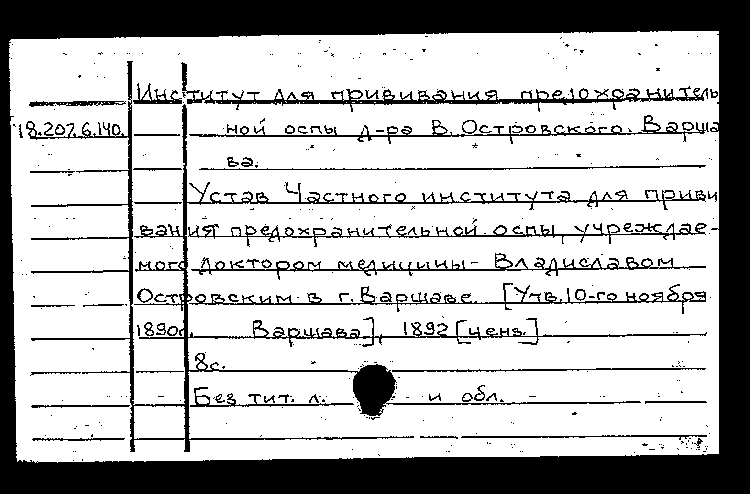 Институт для прививания предохранитель
18.207.6.140. ной оспы д-ра В. Островского. Варша
ва.
Устав Частного института для приви
вания предохранительной оспы, учреждае-
мого доктором медицины - Владиславом
Островским в г. Варшаве. [Утв. 10-го ноября
1890г. Варшава], 1892 [ценз.]
8с.
Без тит. л. и обл.